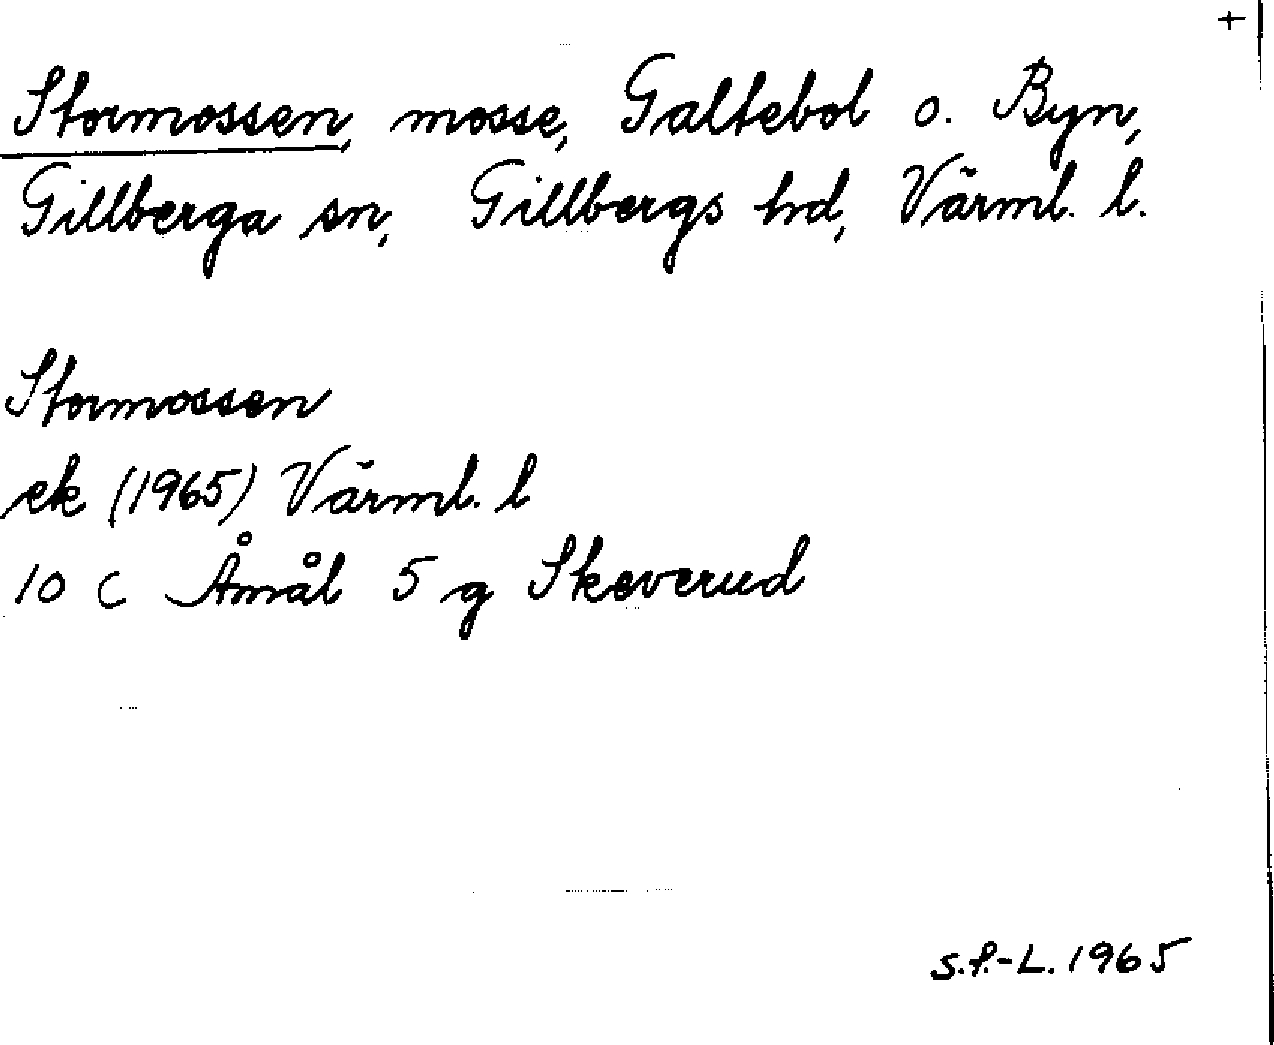 +
Stormossen, mosse, Galtebol o. Byn,
Gillberga sn, Gillbergs hd, Värml. l.
Stormossen
ek (1965) Värml. l
10 C Åmål 5 g Skeverud
S.F.-L. 1965